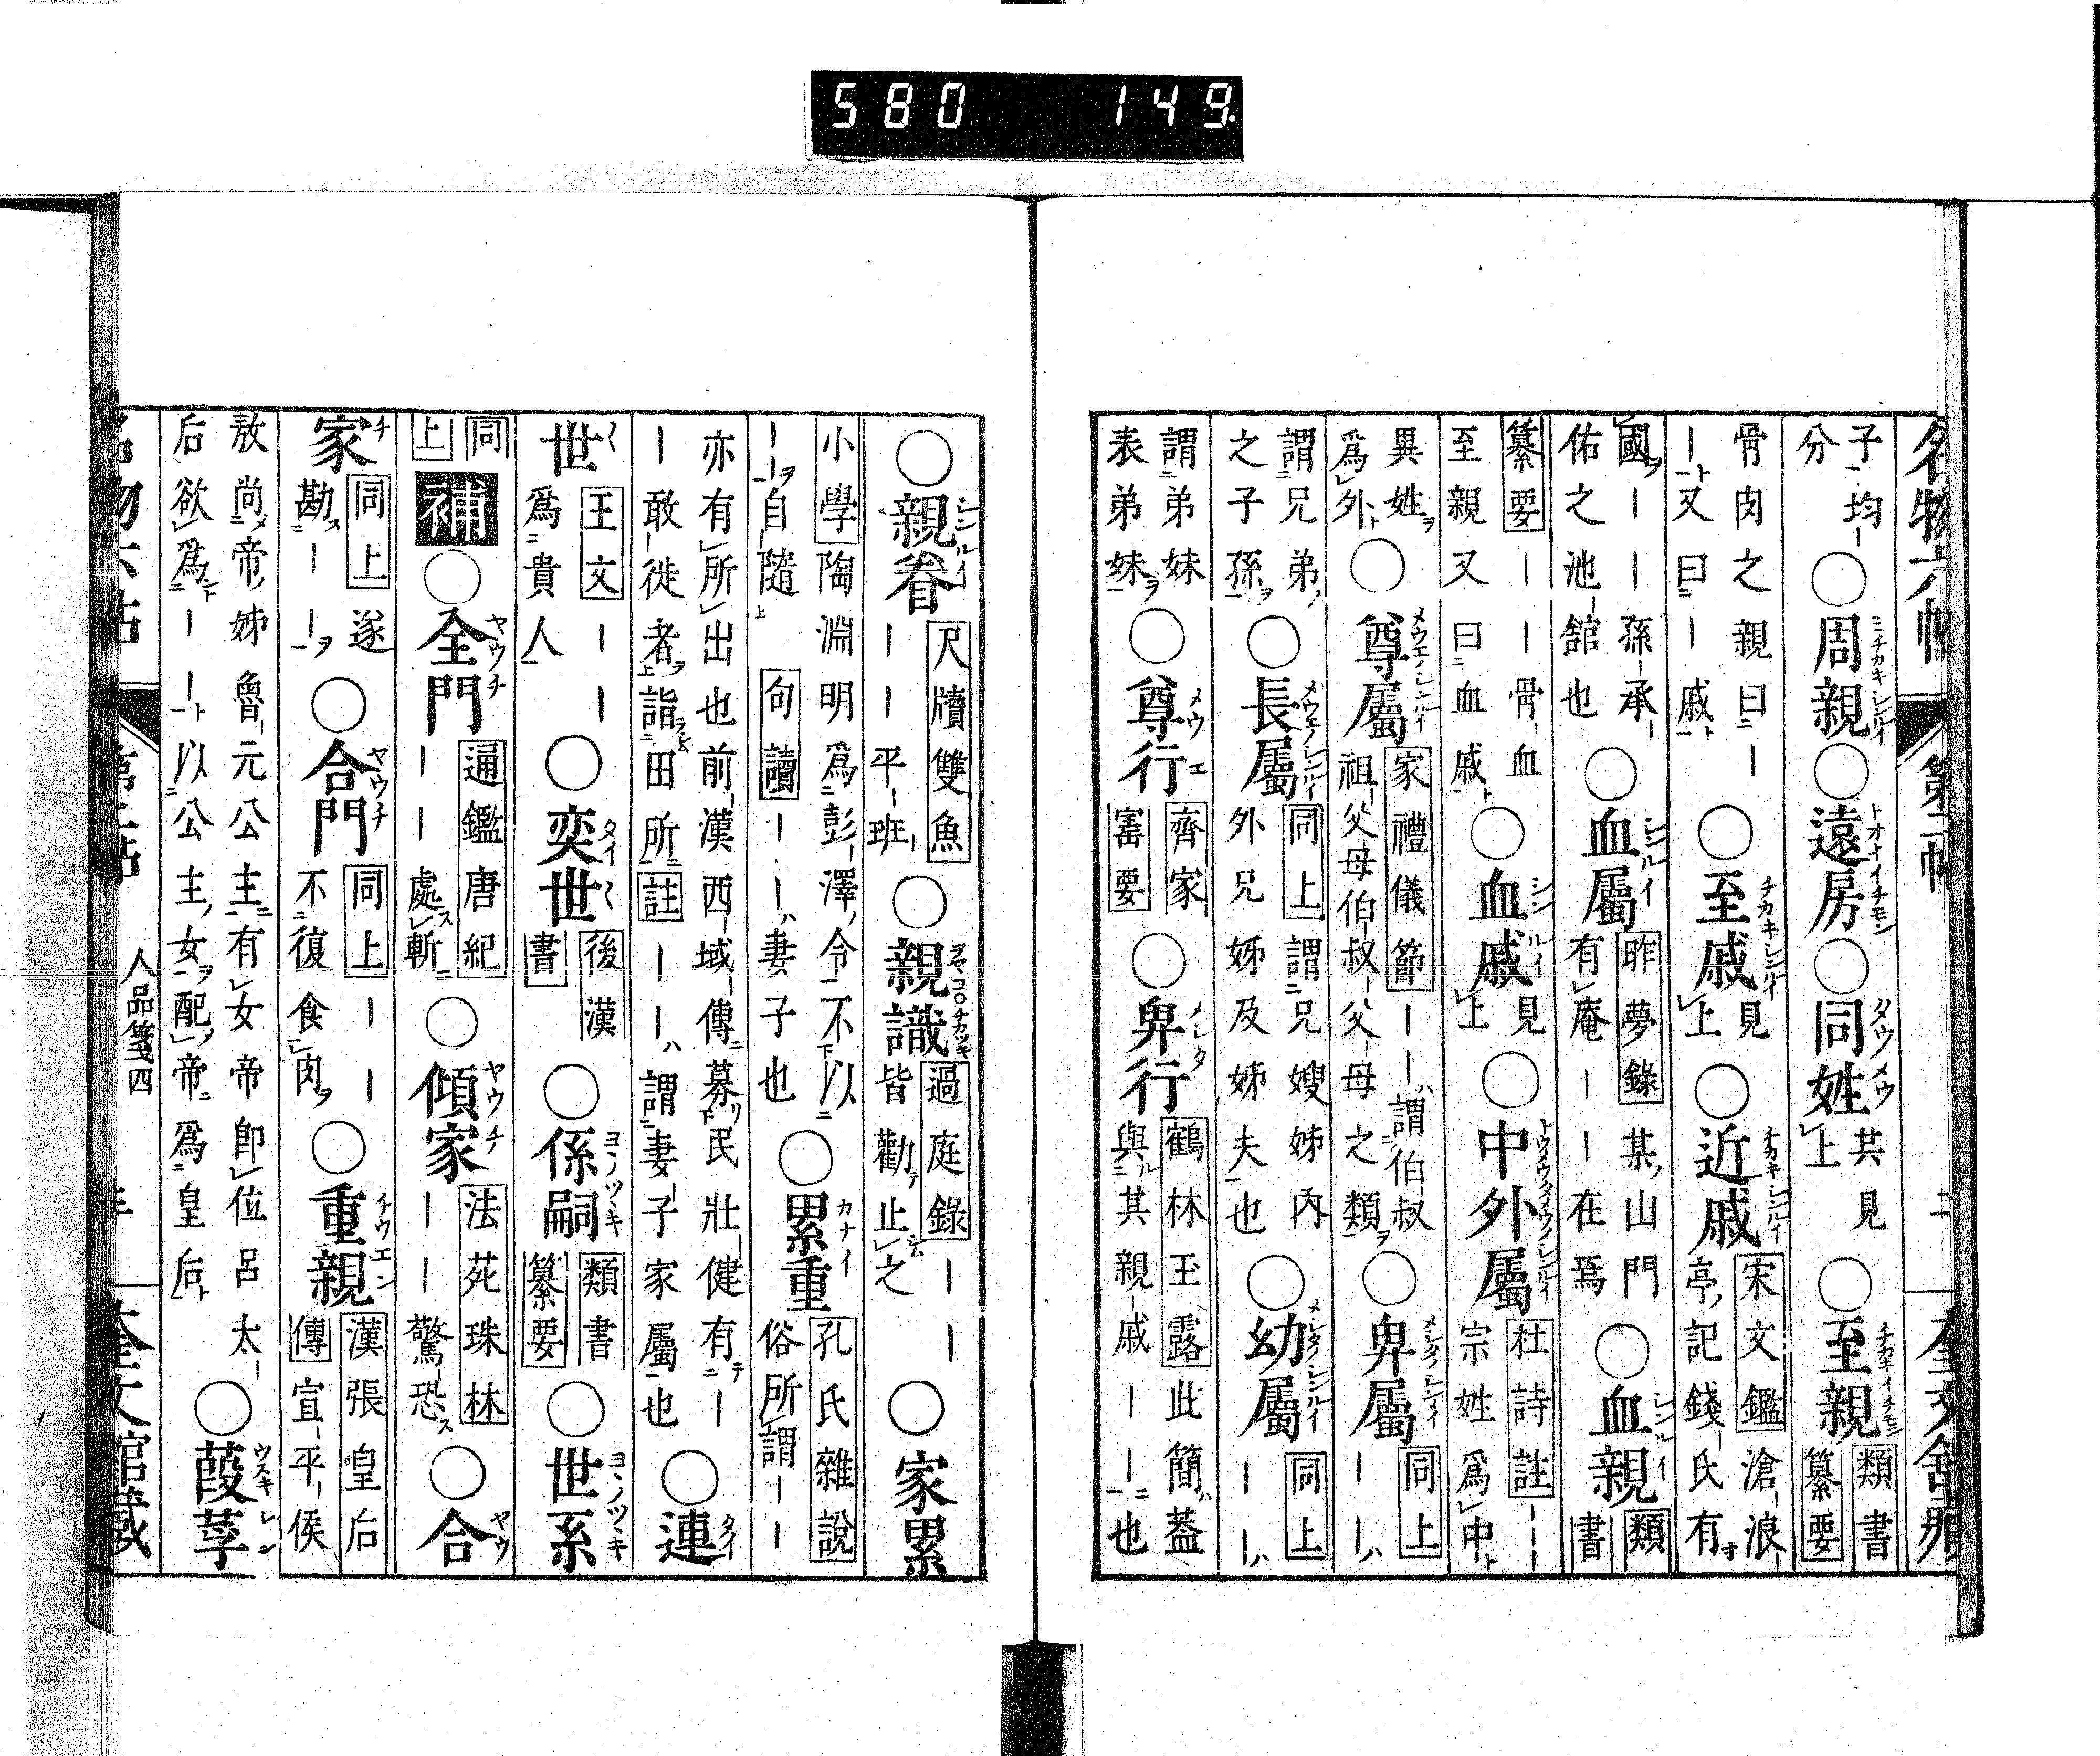 580 149
名物六帖 第二帖 二 奎文舘藏
子均分○周親○遠房○同姓共見上○至親類書纂要
骨肉之親曰ーー又曰ー戚○至戚見上○近戚宋文鑑滄浪亭記錢氏有
國ーー孫承佑之池舘也○血屬昨夢錄某山門有庵ーー在焉○血親類書
纂要ーー骨血至親又曰血戚○血戚見上○中外屬杜詩註ーー宗姓爲中
異姓爲外○尊屬家禮儀節ーー謂伯叔祖父母伯叔父母之類○卑屬同上ーー
謂兄弟之子孫○長屬同上謂兄嫂姊內外兄姊及姊夫也○幼屬同上ーー
謂弟妹表弟妹○尊行齊家寚要○卑行鶴林玉露此簡葢與其親戚ーー也
○親眷尺牘雙魚ーー平班○親識過庭錄ーー皆勸止之○家累
小學陶淵明爲彭澤令不以ーー自隨句讀ーー妻子也○累重孔氏雜說俗所謂ーー
亦有所出也前漢西域傳募民壯健有ーー敢徙者詣田所註ーー謂妻子家屬也○連
世王文ーー爲貴人○奕世後漢書○係嗣類書纂要○世系
同上補○全門通鑑唐紀ーー處斬○傾家法苑珠林ーー驚恐○合
家同上遂勘ーー○合門同上ーー不復食肉○重親漢張皇后傳宣平侯
敖尚帝姊魯元公主有女帝卽位呂太后欲爲ーー以公主女配帝爲皇后○葭莩
人品箋四